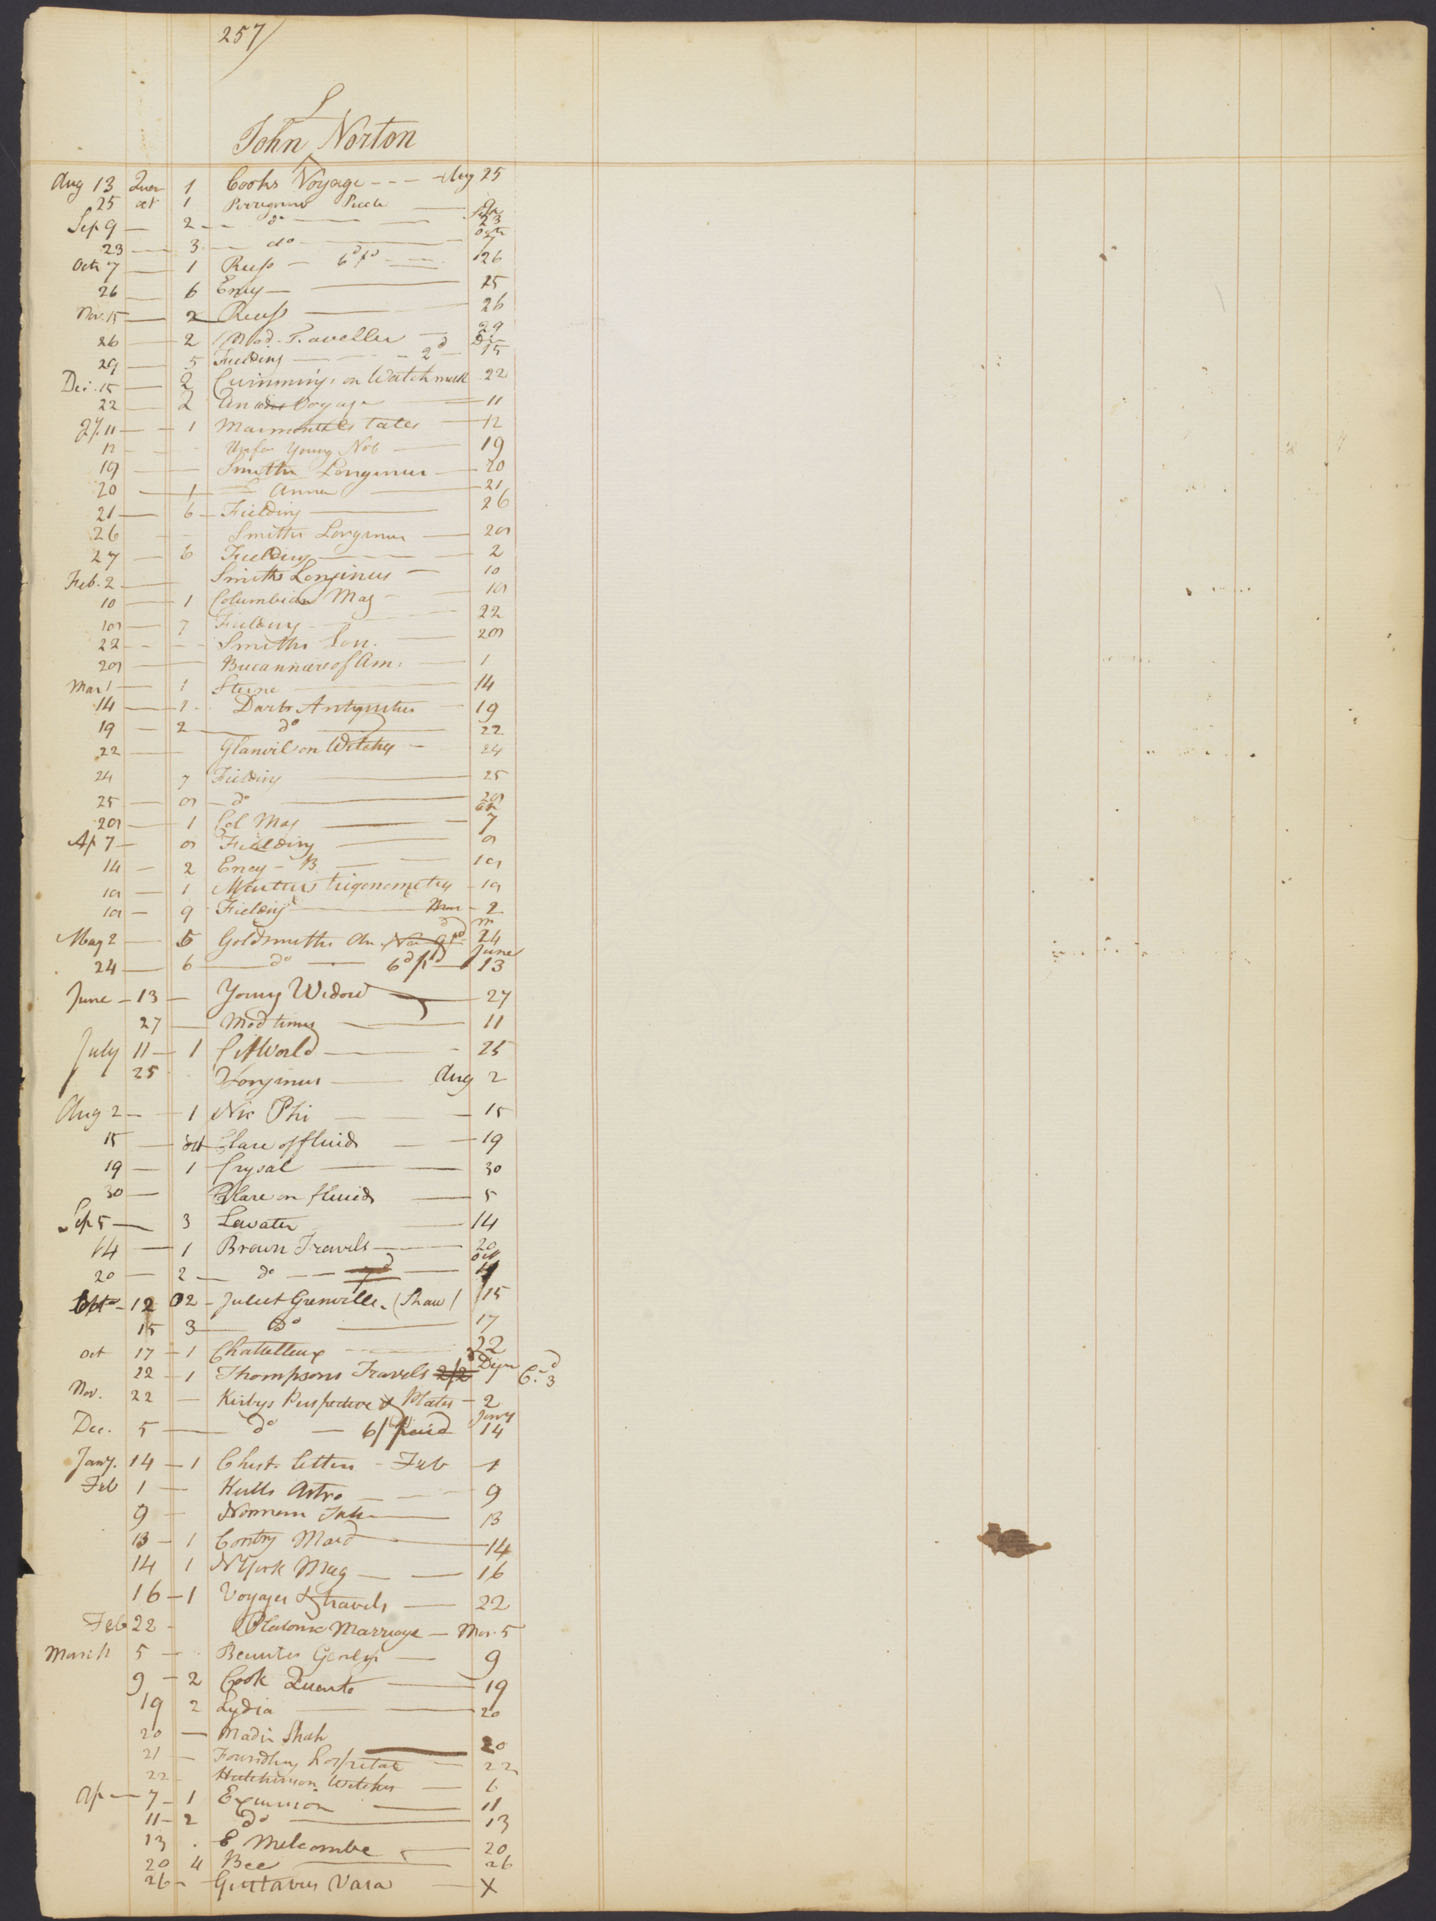 257
S
John Norton
Aug 13 Quar 1 Cooks Voyage - - - Aug 25
25 oct 1 Perregrine Pickle - 9
Sep 9 - 2 - - do - - Sep 23
23 - 3 - do - Octr 7
Octr 7 - 1 Rees - 6d pd - - 26
26 - 6 Ency - - 15
Nov. 15 - 2 Rees - - 26
26 - 2 Mod. Traveller - 29
29 - 5 Fielding - - 2d Dec 15
Dec. 15 - 2 Cummings on Watch mak 22
22 - 2 Voyage - 11
Jy. 11 - - 1 Marmontels tales - 12
12 - - Young Nob - 19
19 - Smiths Longinus - 20
20 - 1 Anna - 21
21 - 6 - Fielding - 26
26 - - Smiths Longinus - 29
27 - 6 Fielding - - 2
Feb. 2 - Smiths Longinus - 10
10 - 1 Columbian Mag - 19
19 - 7 Fielding - 22
22 - - - Smiths Lon. - 29
29 - Bucanniers of Am. - 1
Mar 1 - 1 Sterne - 14
14 - 1 - Darts Antiquities - 19
19 - 2 - do - 22
22 - Glanvil on Witches - 24
24 7 Fielding - 25
25 - 8 - do - 29
29 - 1 Col Mag - 7
Ap 7 - 8 Fielding - 9
14 - 2 Ency - B. - 19
19 - 1 Martins trigonometry - 19
19 - 9 - Fielding - - 2
May 2 - 5 Goldsmiths An. 24
24 - 6 - do - 6d pd - June 13
June - 13 - Young Widow - 27
27 - Mod times - 11
July 11 - 1 Cit World - - 25
25 Longinus - Aug 2
Aug 2 - - 1 Nic Phi - - 15
15 - Clare of fluids - - 19
19 - 1 Crysal - - 30
30 - Clare on fluids - 5
Sep 5 - 3 Lavater - 14
14 - 1 Brown Travels - 20
20 - 2 - do - - Oct 4
12 02 - Juliet Grenville - (Shaw) 15
15 3 - Do - 17
oct 17 - 1 Chattelleux - 22
22 - 1 Thompsons Travels 2/2 Decr 1 6d. 3
Nov. 22 - Kirbys Perspective & Plates - 2
Dec. 5 - do - 6/ paid Jany 14
Jany. 14 - 1 Chest. letters - Feb - 1
Feb 1 - Keills Astro - - 9
9 - Norman Tale - 13
13 - 1 Contry Maid - 14
14 1 N York Mag - - 16
16 - 1 Voyages & travels - 22
Feb 22 - Platonic Marriage - Mar. 5
March 5 - - - 9
9 - 2 Cook Quarto - 19
19 2 Lydia - - 20
20 - Nadir Shah 20
21 - Foundling hospital - 22
22 - Hutchinson Witches - 6
Ap - 7 - 1 Excursion - 11
11 - 2 do - 13
13 . E Melcombe - 20
20 4 Bee - 26
26 - Gustavus Vasa - X